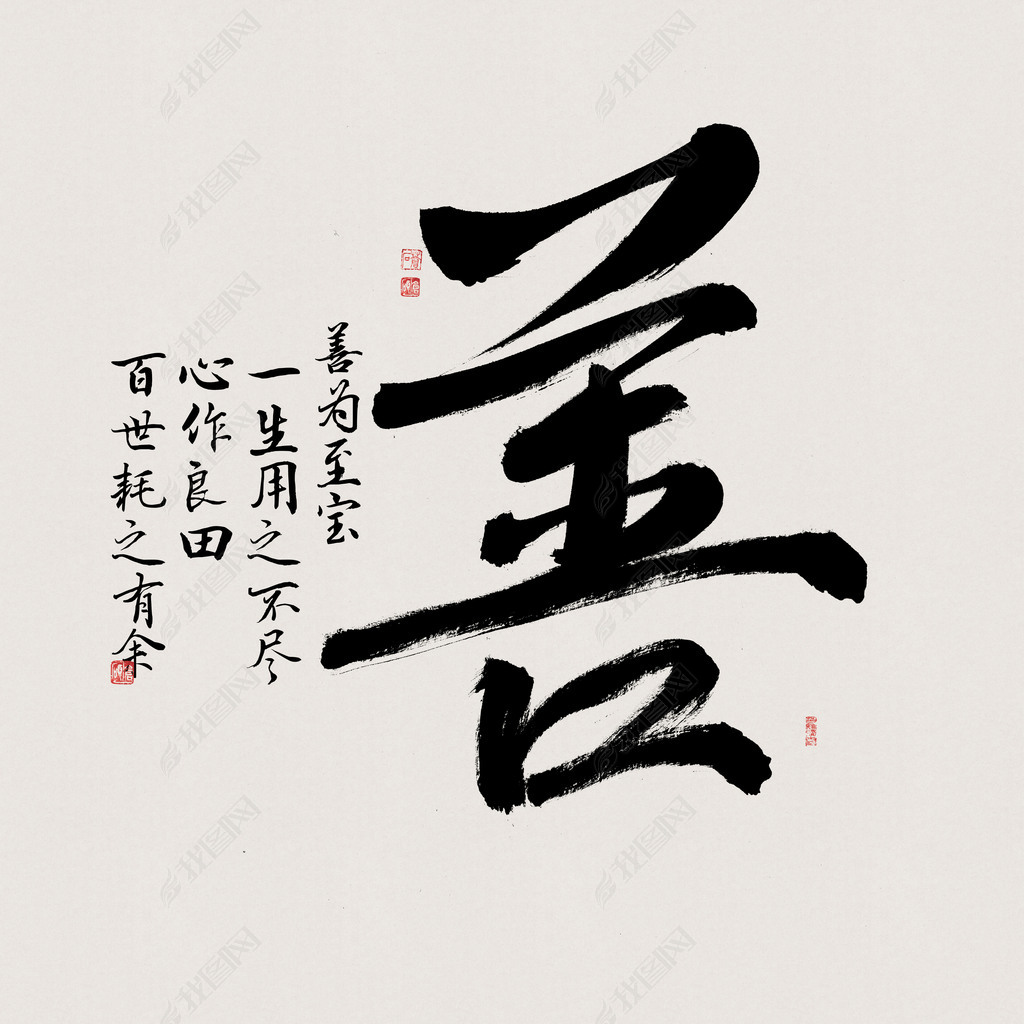 善
善为至宝
一生用之不尽
心作良田
百世耗之有余
我图网